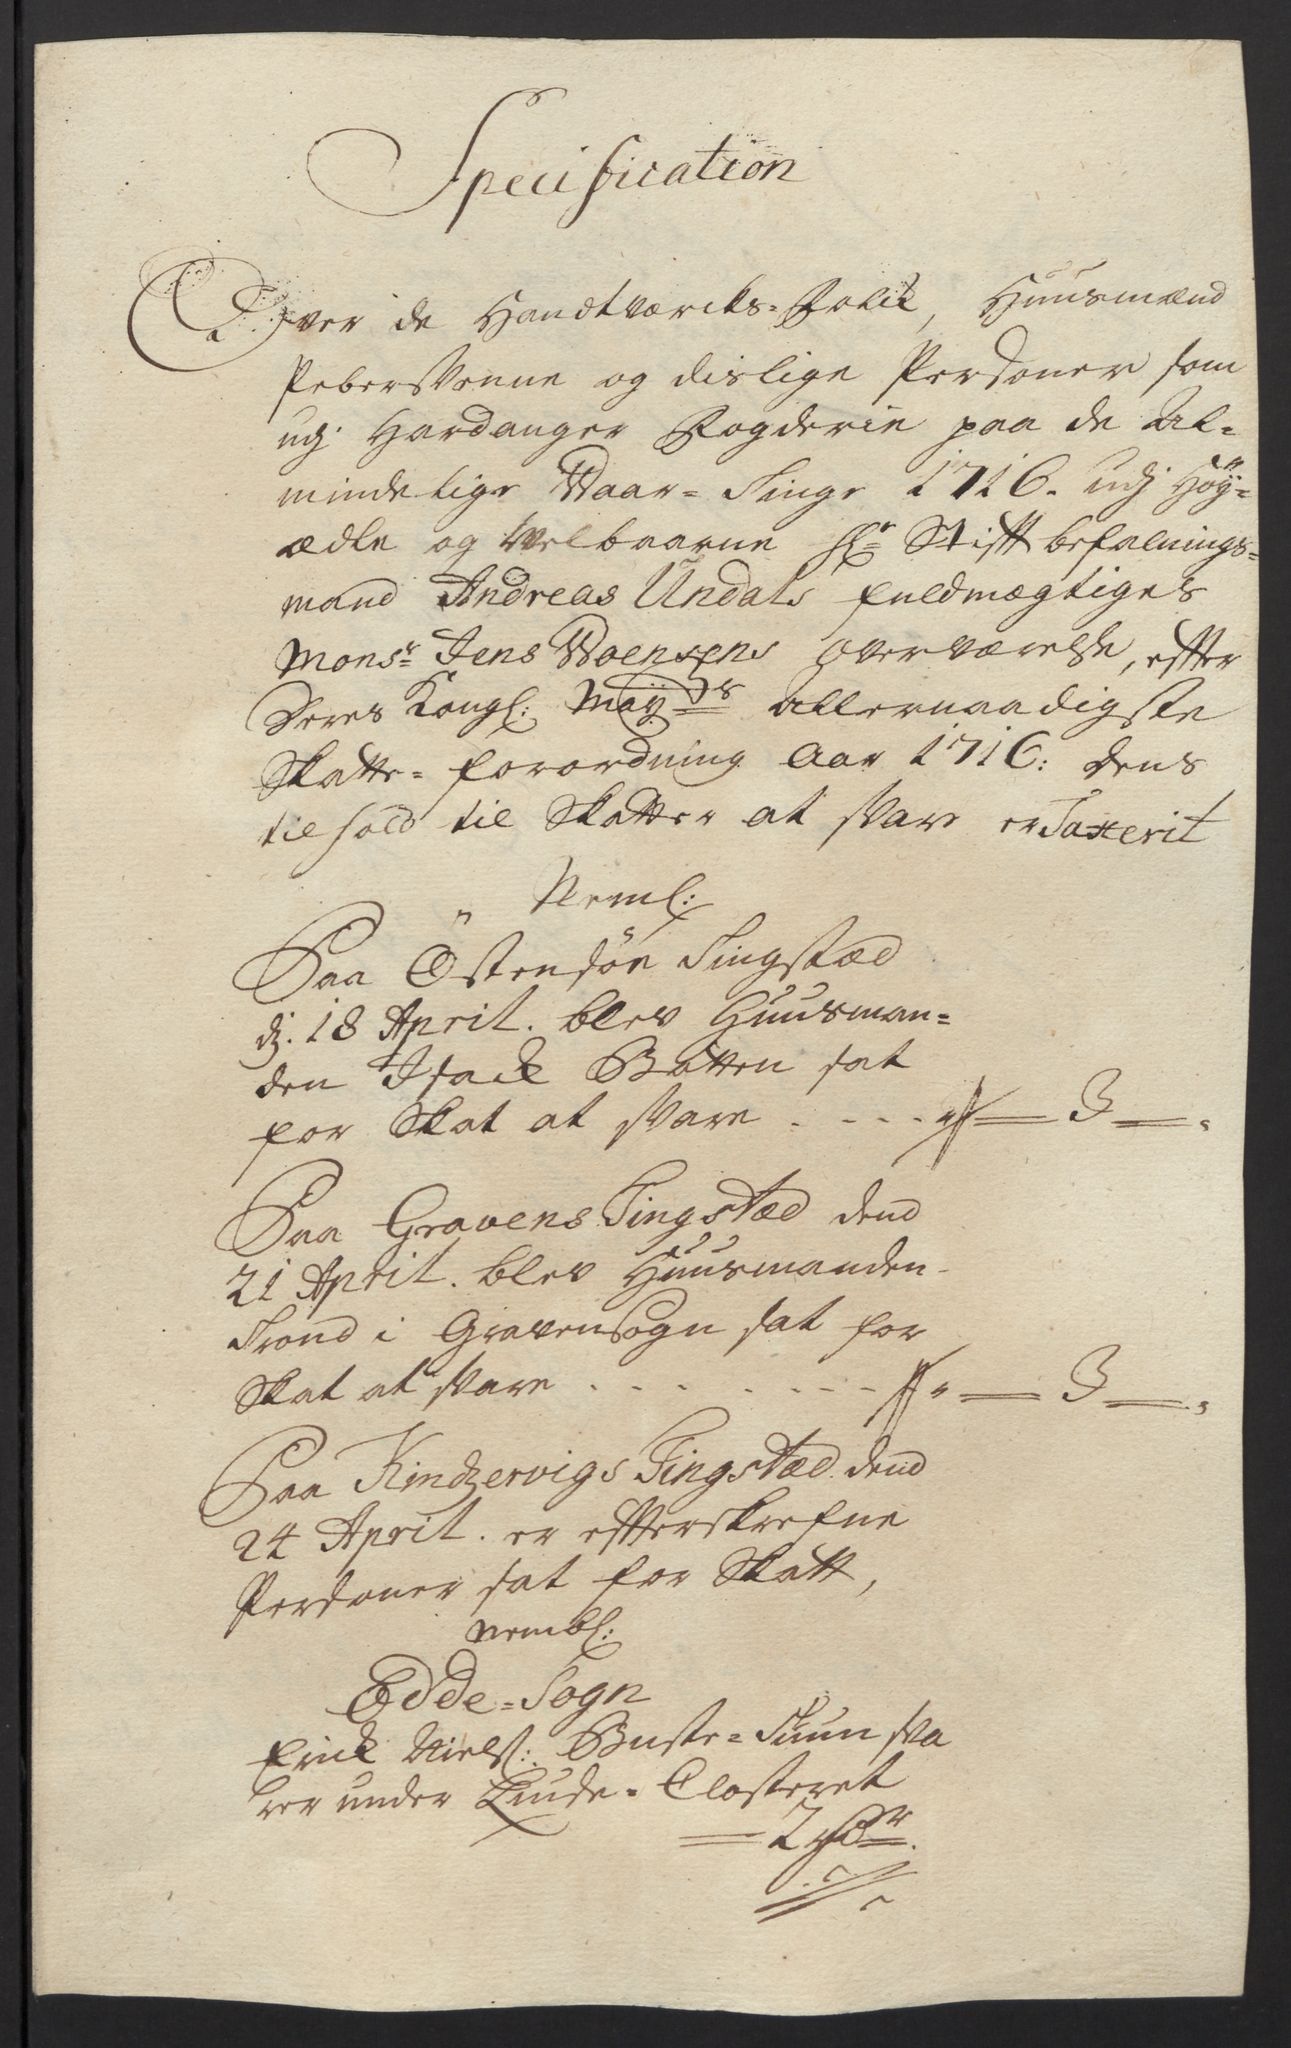 Specification
Over de Handtværcks-Folck, Huusmænd
Pebersvenne og dislige Persooner som
udj Hardanger Fogderie paa de Al-
mindelige Waar-Tinge 1716. udj Höÿ-
ædle og Welbaarne Hr Stiftbefalnings-
mand Andreas Undals fuldmægtiges
Monsr Jens Woensens overværelse, efter
Deres Kongl: Maÿts allernaadigste
Skatte-forordning Aar 1716: dens
tilhold til Skatter at svare er Taxerit
Neml:
Paa Östensöe Tingstæd
dj. 18 April. blev Huusman-
den Isack Botten sat
for Skat at svare . - - - - 3 —
Paa Gravens Tingstæd dend
21 April. blev Huusmanden
Trond i Gravensogn sat for
Skat at svare . . . . - - - 3 —
Paa Kindzervigs Tingstæd dend
24 April. er efterskrefne
Persooner sat for Skatt,
nembl:
Odde-Sogn
Erick Niels: Buste-Tuun sva
rer under Liusde-Closteret